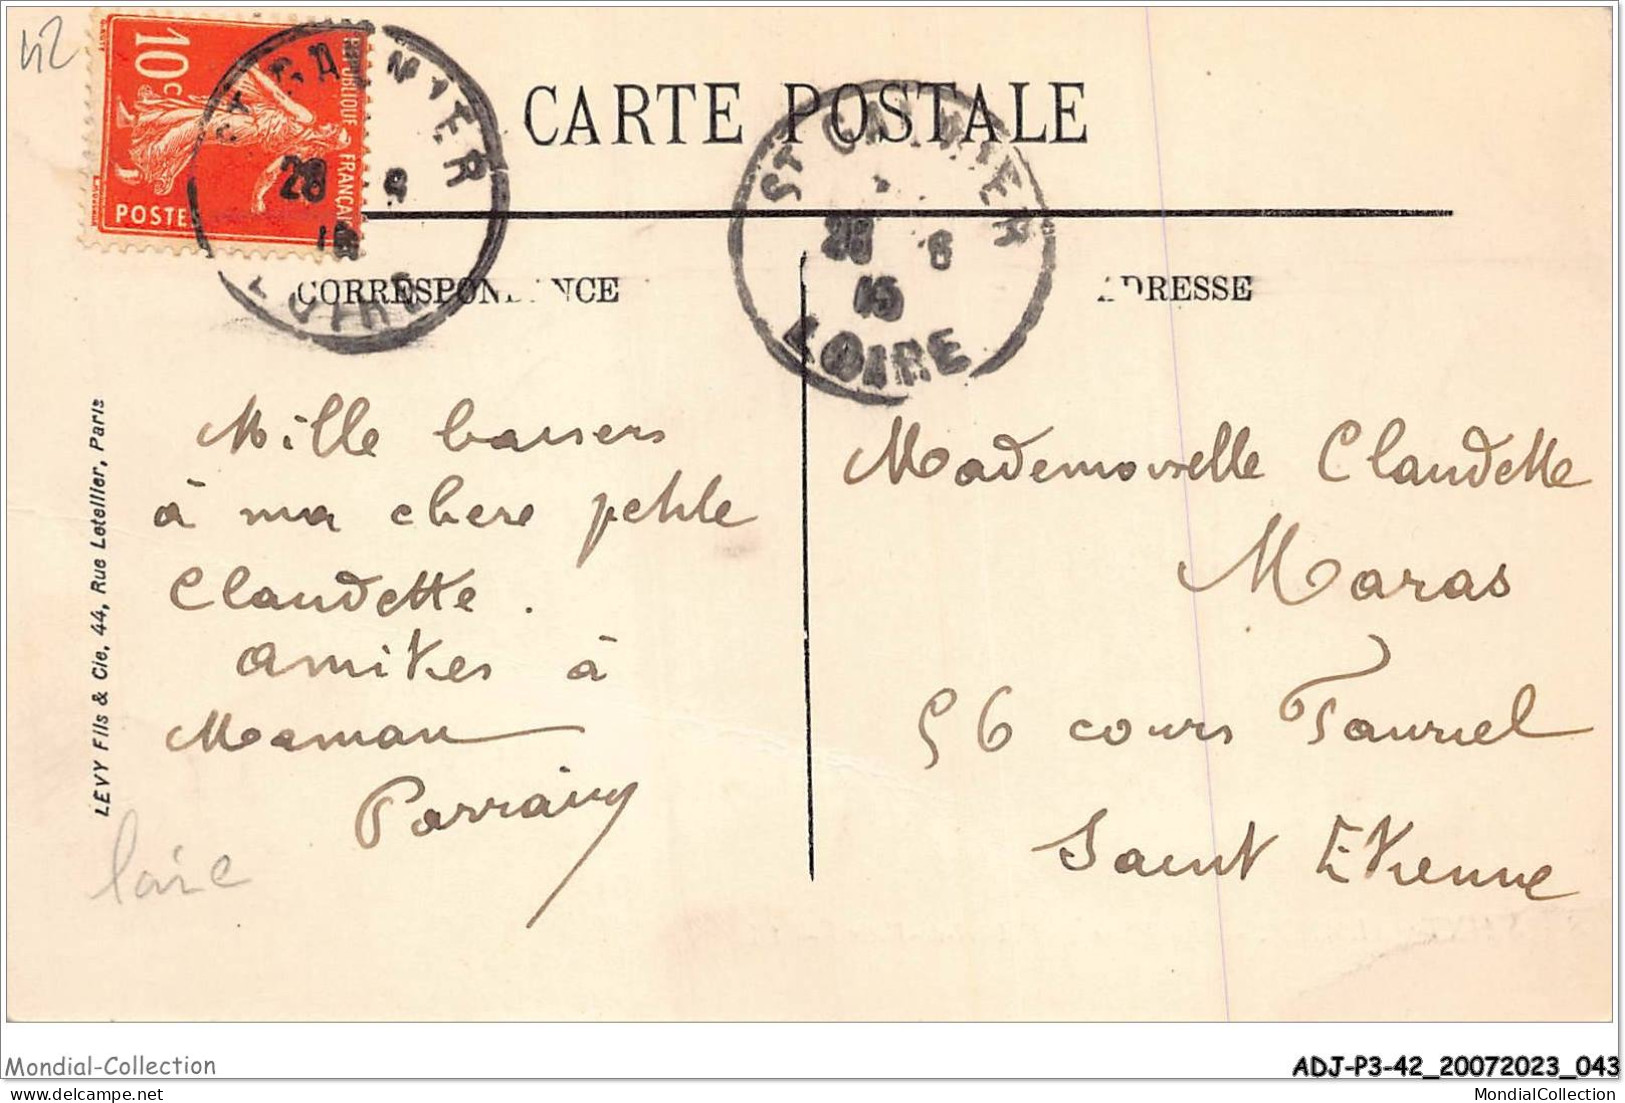 42
10c
RÉPUBLIQUE FRANÇAISE
POSTES
ST GALMIER
28
LOIRE
CARTE POSTALE
ST GALMIER
28 6
15
LOIRE
CORRESPONDANCE
ADRESSE
LEVY Fils & Cie, 44, Rue Letellier, Paris
Mille baisers
à ma chere petite
Claudette.
amities à
Maman
Parrain
Mademoiselle Claudette
Maras
56 cours Fauriel
Saint Etienne
Loire
Mondial-Collection
ADJ-P3-42_20072023_043
MondialCollection
MondialCollection